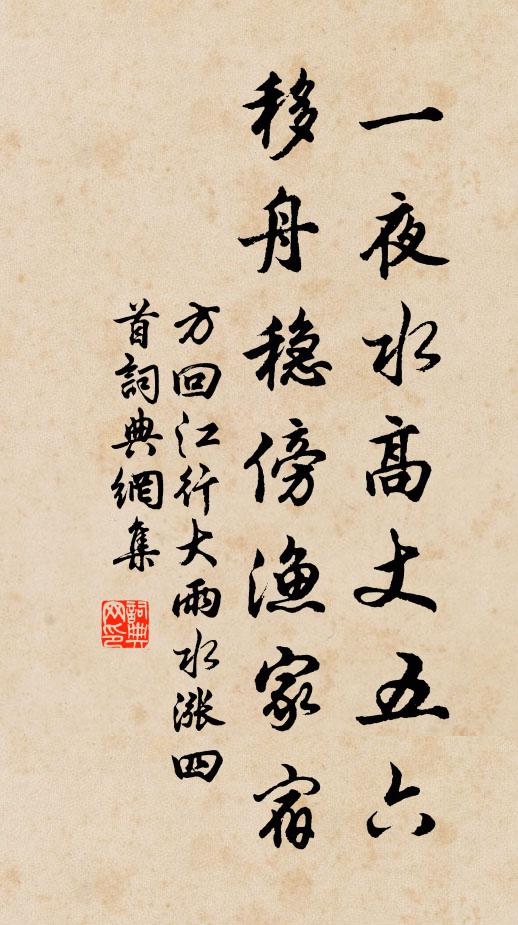 一夜水高丈五六
移舟穏傍漁家宿
方回江行大雨水漲四
首詞典網集
詞典网印